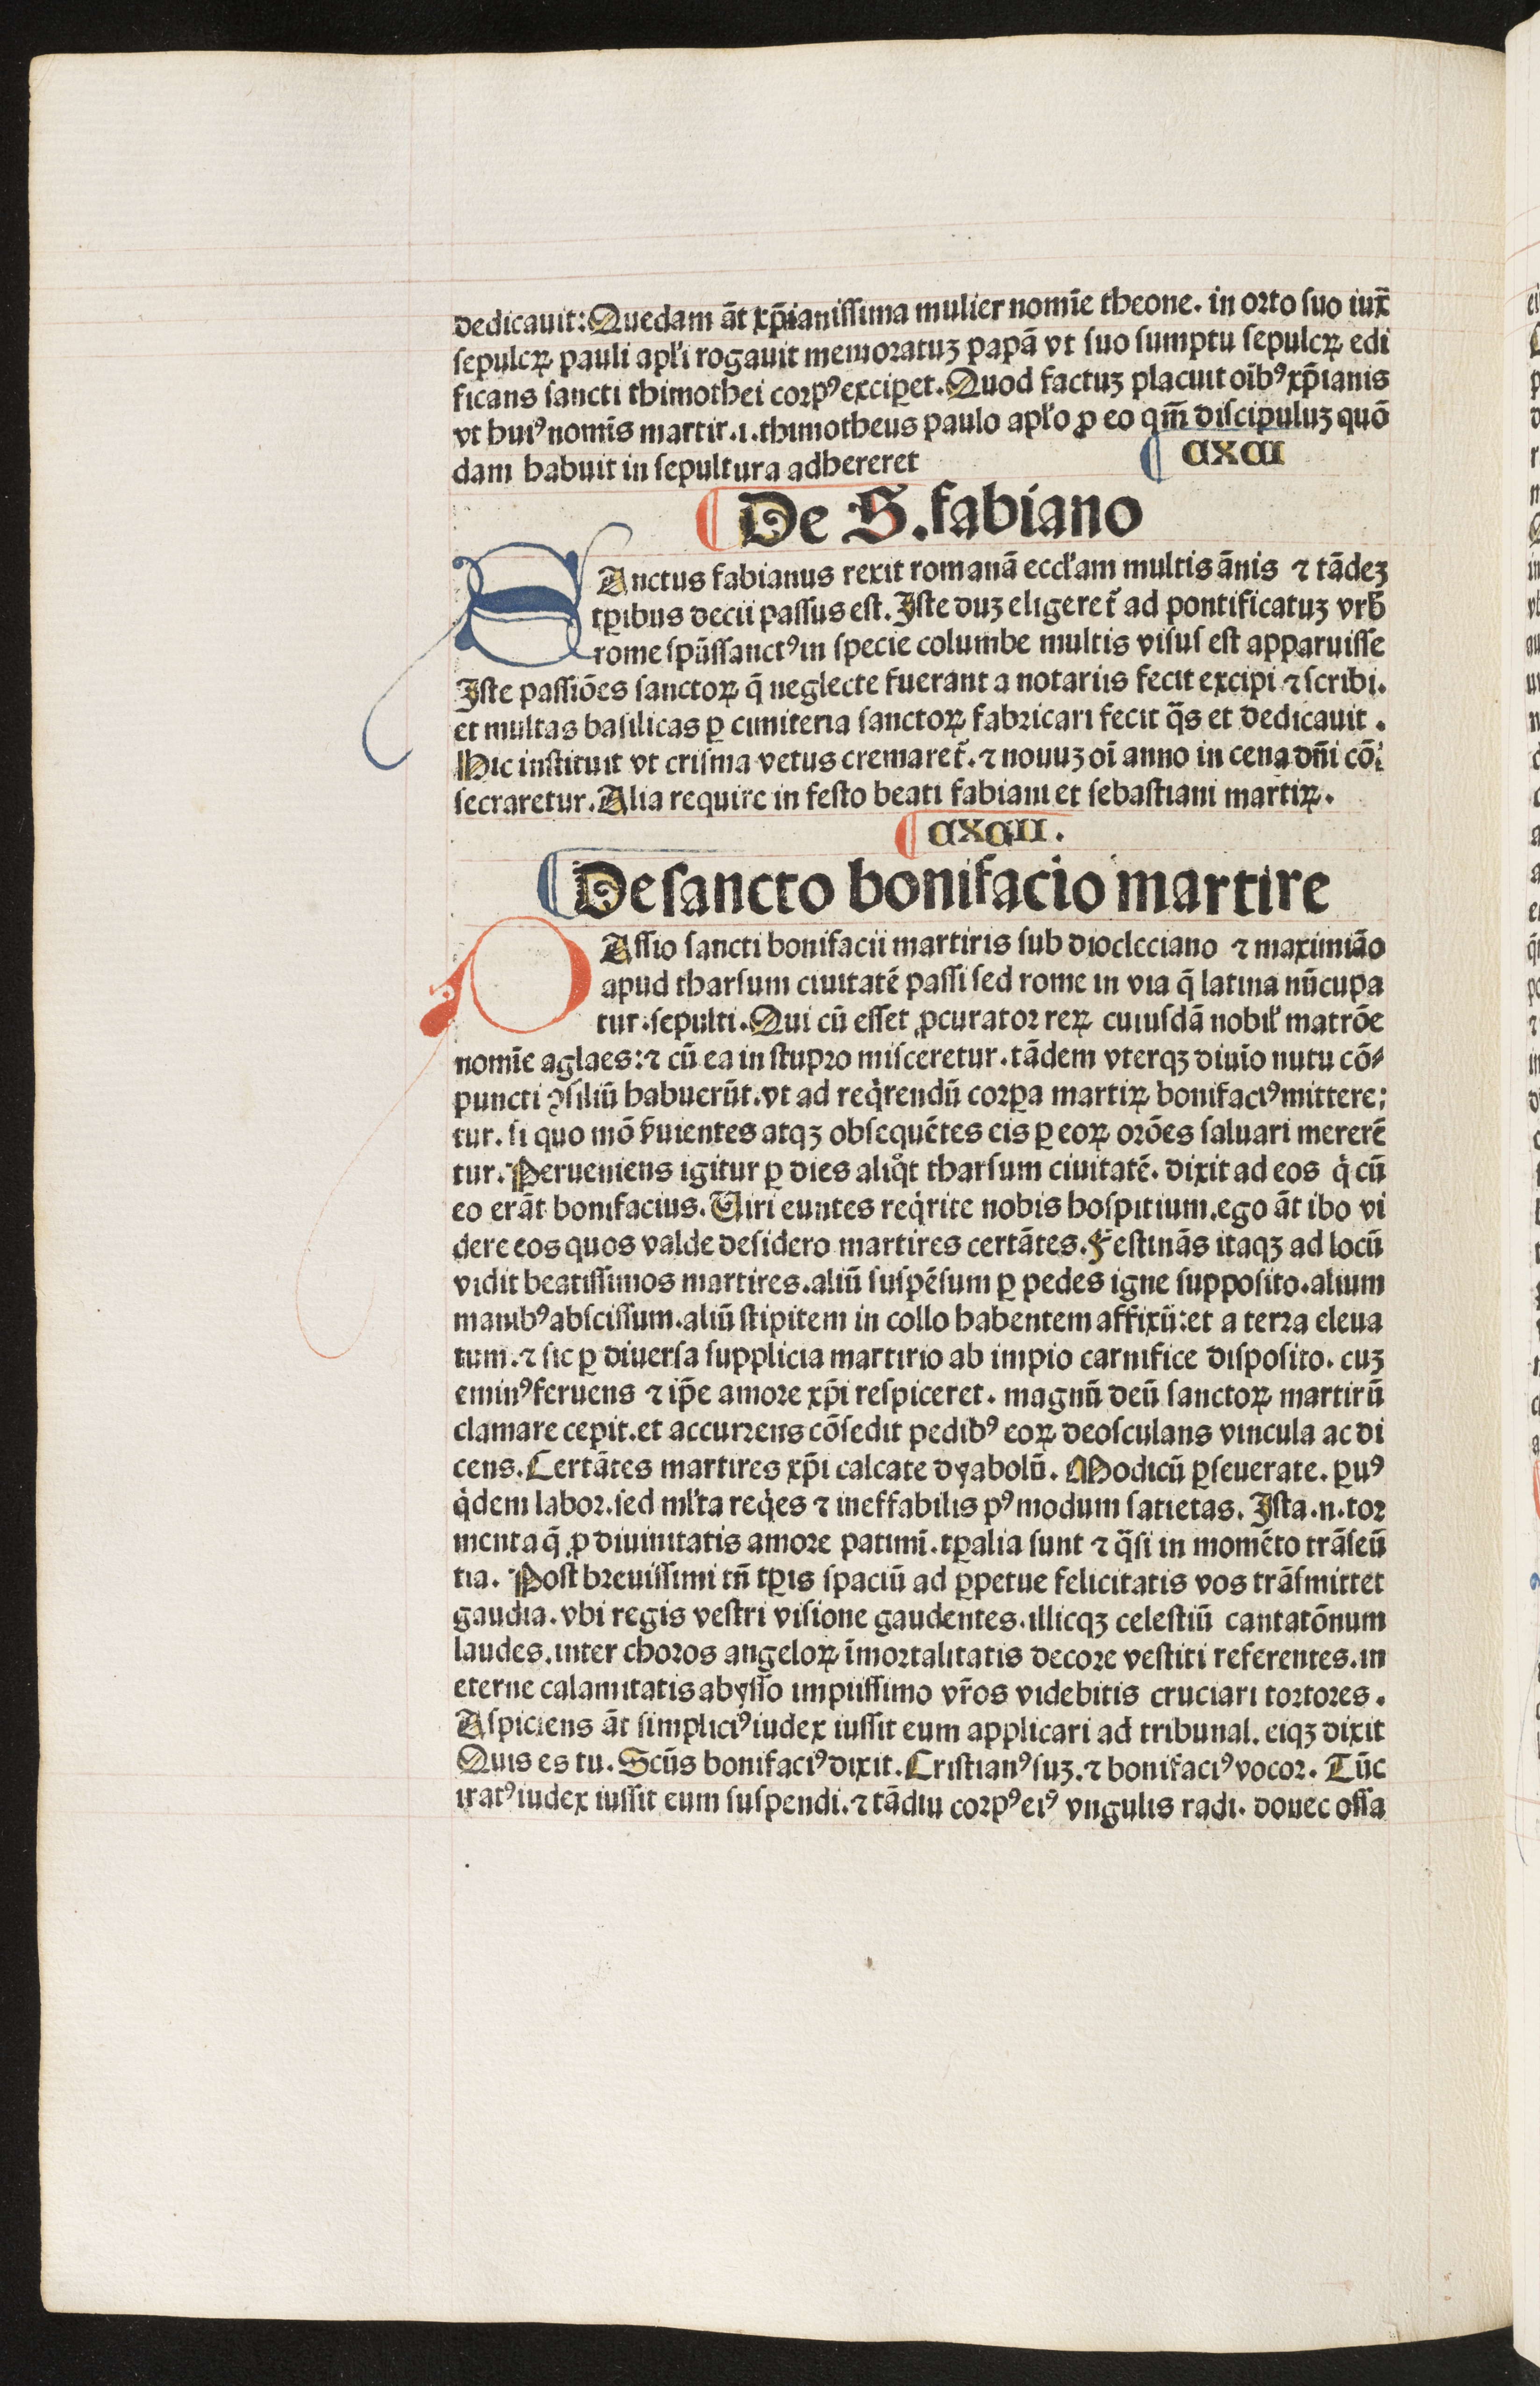 dedicauit: Quedam āt xp̄ianissima mulier nomīe theone. in orto suo iux̄
sepulcꝝ pauli apl'i rogauit memoratuꝫ papā vt suo sumptu sepulcꝝ edi
ficans sancti thimothei corpꝰ exciꝑet. Quod factuꝫ placuit oībꝰ xp̄ianis
vt huiꝰ nomīs martir .i. thimotheus paulo apl'o ꝓ eo qm̄ discipuluꝫ quō
dam habuit in sepultura adhereret
CXCI
De S. fabiano
SAnctus fabianus rexit romanā eccl'am multis ānis ⁊ tādeꝫ
tꝑibus decii passus est. Iste duꝫ eligeret̄ ad pontificatuꝫ vrb̄
rome spūssanctꝰ in specie columbe multis visus est apparuisse
Iste passiōes sanctoꝝ q̄ neglecte fuerant a notariis fecit excipi ⁊ scribi.
et multas basilicas ꝑ cimiteria sanctoꝝ fabricari fecit q̄s et dedicauit.
Hic instituit vt crisma vetus cremaret̄. ⁊ nouuꝫ oī anno in cena dn̄i cō⸗
secraretur. Alia require in festo beati fabiani et sebastiani martiꝝ.
CXCII.
De sancto bonifacio martire
PAssio sancti bonifacii martiris sub diocleciano ⁊ maximiāo
apud tharsum ciuitatē passi sed rome in via q̄ latina nūcupa
tur. sepulti. Qui cū esset ꝓcurator reꝝ cuiusdā nobil' matrōe
nomīe aglaes: ⁊ cū ea in stupro misceretur. tādem vterqꝫ diuīo nutu cō⸗
puncti ꝯsiliū habuerūt. vt ad reqͥrendū corꝑa martiꝝ bonifaciꝰ mittere⸗
tur. si quo mō s̄uientes atqꝫ obsequētes eis ꝑ eoꝝ orōes saluari mererē
tur. Perueniens igitur ꝑ dies aliqͦt tharsum ciuitatē. dixit ad eos qͥ cū
eo erāt bonifacius. Uiri euntes reqͥrite nobis hospitium. ego āt ibo vi
dere eos quos valde desidero martires certātes. Festinās itaqꝫ ad locū
vidit beatissimos martires. aliū suspēsum ꝑ pedes igne supposito. alium
manibꝰ abscissum. aliū stipitem in collo habentem affixū: et a terra eleua
tum. ⁊ sic ꝑ diuersa supplicia martirio ab impio carnifice disposito. cuꝫ
eminꝰ feruens ⁊ ip̄e amore xp̄i respiceret. magnū deū sanctoꝝ martirū
clamare cepit. et accurrens cōsedit pedibꝰ eoꝝ deosculans vincula ac di
cens. Certātes martires xp̄i calcate dyabolū. Modicū ꝑseuerate. ꝑuꝰ
qͥdem labor. sed ml'ta reqͥes ⁊ ineffabilis pꝰ modum satietas. Ista .n. tor
menta q̄ ꝓ diuinitatis amore patimī. tꝑalia sunt ⁊ q̄si in momēto trāseū
tia. Post breuissimi tn̄ tꝑis spaciū ad ꝑpetue felicitatis vos trāsmittet
gaudia. vbi regis vestri visione gaudentes. illicqꝫ celestiū cantatōnum
laudes. inter choros angeloꝝ īmortalitatis decore vestiti referentes. in
eterne calamitatis abysso impiissimo vr̄os videbitis cruciari tortores.
Aspiciens āt simpliciꝰ iudex iussit eum applicari ad tribunal. eiqꝫ dixit
Quis es tu. Scūs bonifaciꝰ dixit. Cristianꝰ suꝫ. ⁊ bonifaciꝰ vocor. Tūc
iratꝰ iudex iussit eum suspendi. ⁊ tādiu corpꝰ eiꝰ vngulis radi. donec ossa